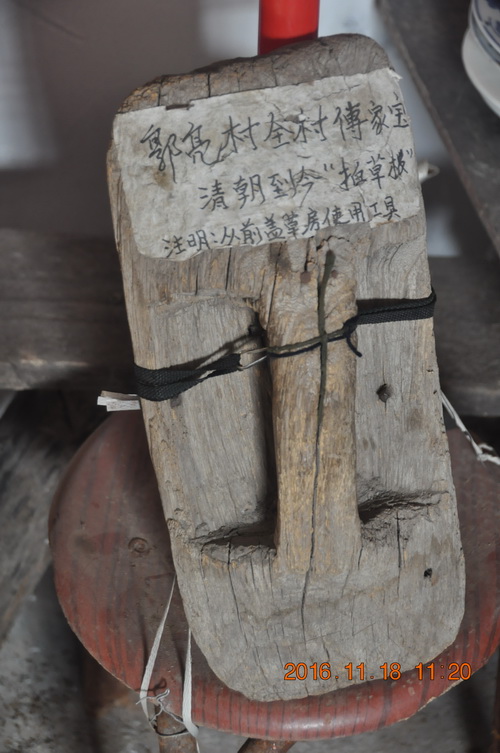 郭亮村全村傳家宝
清朝到今"拍草板"
注明:从前盖草房使用工具
2016.11.18 11:20